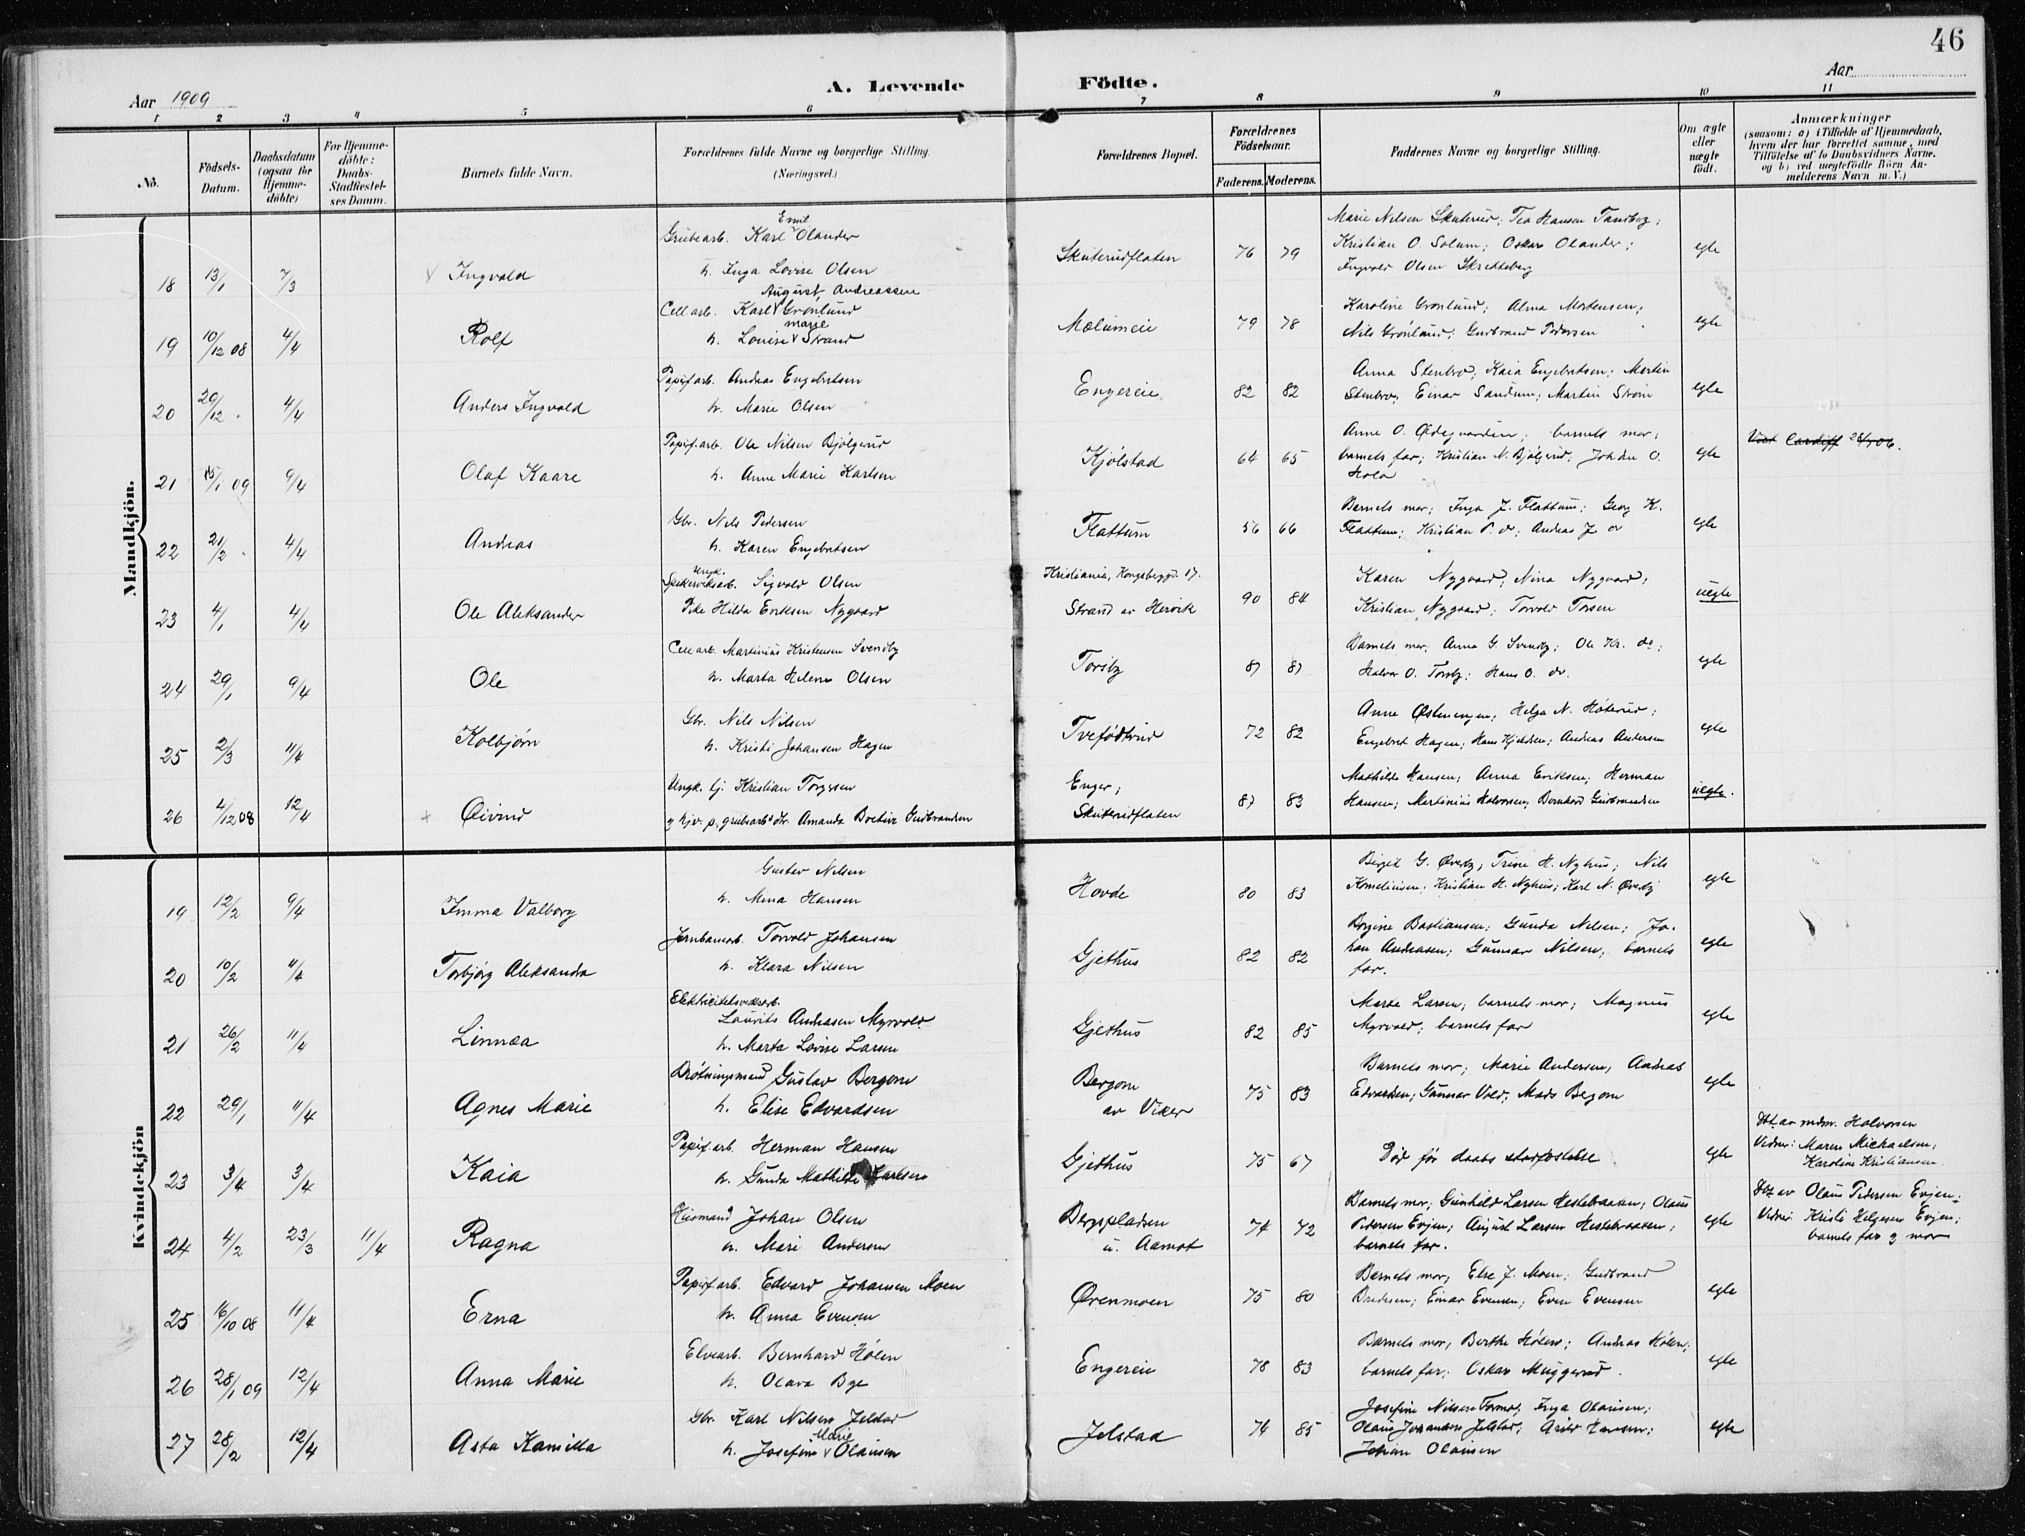 46
Aar 1909
A. Levende Födte.
Aar
1 2 3 4 5 6 7 8 9 10 11
No.
Födsels-Datum.
Daabsdatum (ogsaa for Hjemmedöbte)
For Hjemmedöbte: Daabs-Stadfæstelses Datum.
Barnets fulde Navn.
Forældrenes fulde Navne og borgerlige Stilling. (Næringsvei.)
Forældrenes Bopæl.
Forældrenes Födselsaar.
Faderens. Moderens.
Faddernes Navne og borgerlige Stilling.
Om ægte eller uægte födt.
Anmærkninger
(saasom: a) i Tilfælde af Hjemmedaab,
hvem der har forrettet samme, med
Tilföielse af to Daabsvidners Navne,
og b) ved uægtefödte Börn An-
melderens Navn m. V.)
Mandkjön.
Emil
Grubearb. Karl Olander
Marie Nilsen Skuterud; Tea Hansen Tandberg;
Kristian O. Solum; Oskar Olander;
18 13/1 7/3 Ingvald h. Inga Lovise Olsen Skuterudflaten 76 79 Ingvald Olsen Skretteberg egte
August, Andreassen
Cell arb. Karl Grønlund
Karoline Grønlund; Alma Mortensen;
marie
19 10/12 08 4/4 Rolf h. Louise Strand Mælumeie 79 78 Nils Grønlund; Gudbrand Pedersen egte
Papirf. arb. Andreas Engebretsen
Anna Stenbro; Kaia Engebretsen; Martin
20 20/12 " 4/4 Anders Ingvald h. Marie Olsen Engereie 82 82 Stenbro; Einar Sandum; Martin Strøm egte
Papirf. arb. Ole Nilsen Bjølgerud
Anne O. Ødegaarden; barnets mor;
21 15/1 09 9/4 Olaf Kaare h. Anne Marie Karlsen Kjölstad 64 65 barnets far; Kristian N. Bjølgerud; Johan O. egte Cardiff
Gbr. Nils Pedersen
Barnets mor; Inga J. Flattum; Georg K.
22 21/2 " 4/4 Andreas h. Karen Engebretsen Flattum 56 66 Flattum; Kristian P. do; Andreas J. do egte
Ungk.
Spikerverksarb. Sigvald Olsen
Kristiania, Kongsberggd. 17.
Karen Nygaard; Nina Nygaard;
23 4/1 4/4 Ole Aleksander Pike Hilda Eriksen Nygaard Strand av Hervik 90 84 Kristian Nygaard; Torvald Torsen uegte
Cell arb. Martinius Kristensen Svendby
Barnets mor; Anna G. Svendby; Ole Kr. do;
24 29/1 9/4 Ole h. Marta Helene Olsen Torsby 87 87 Halvor O. Torsby; Hans O. do. egte
Gbr. Nils Nilsen
Anne Østenengen; Helga N. Høterud;
25 2/3 11/4 Kolbjørn h. Kristi Johansen Hagen Tveföttrud 72 82 Engebret Hagen; Hans Kjeldsen; Andreas Andersen egte
Ungk. tj. Kristian Torgersen
Enger;
Mathilde Hansen; Anna Eriksen; Herman
26 4/12 08 12/4 Øivind og hjv. p. grubearb. dtr. Amanda Boletine Gudbrandsen Skuterudflaten 87 83 Hansen; Martinius Halvorsen; Bernhard Gudbrandsen uegte.
Kvindekjön
Gustav Nilsen
Birgit G. Øverby; Trine H. Nyhus; Nils
19 12/2 9/4 Imma Valborg h. Mina Hansen Hovde 80 83 Korneliusen; Kristian H. Nyhus; Karl N. Øverby egte
Jernbanearb. Torvald Johansen
Borgine Bastiansen; Gunda Nilsen; Jo-
20 10/2 11/4 Torbjørg Aleksandra h. Klara Nilsen Gjethus 82 82 han Andreasen; Gunnar Nilsen; barnets
far. egte
Elektricitetsverksarb.
Laurits Andreasen Myrvold
Marta Larsen; barnets mor; Magnus
21 26/2 11/4 Linnæa h. Marta Lovise Larsen Gjethus 82 85 Myrvold; barnets far egte
Brøtningsmand Gustav Bergom
Barnets mor; Marie Andersen; Andreas
22 29/1 11/4 Agnes Marie h. Elise Edvardsen Bergom av Viker 75 83 Edvardsen; Gunnar Vold; Mads Bergom egte
Papirf. arb. Herman Hansen
Hdt. av mdm. Halvorsen
Vidner: Maren Michaelsen;
Karoline Kristiansen
23 3/4 3/4 Kaia h. Gunda Mathilde Karlsen Gjethus 75 67 Død før daabs stadfæstelse egte
Husmand Johan Olsen
Barnets mor; Gunhild Larsen Hestebraaten; Olaus
Hdt. av Olaus Pedersen Evjen;
24 4/2 23/3 11/4 Ragna h. Mari Andersen Bergpladsen u. Aamot 74 72 Pedersen Evjen; August Larsen Hestebraaten;
barnets far. egte Vidner: Kristi Helgesen Evjen;
barnets far og mor
Papirf arb. Edvard Johansen Moen
Barnets mor; Else J. Moen; Gudbrand
25 16/10 08 11/4 Erna h. Anna Evensen Ørenmoen 75 80 Bredesen; Einar Evensen; Even Evensen egte
Elvearb. Bernhard Hølen
Barnets mor; Berthe Hølen; Andreas Hølen;
26 28/1 09 12/4 Anna Marie h. Olava Bye Engereie 78 83 barnets far; Oskar Muggerud. egte
Gbr. Karl Nilsen Jelstad
Josefine Nilsen Formo; Inga Olausen;
Marie
27 28/2 12/4 Asta Kamilla h. Josefine Olausen Jelstad 74 85 Olaus Johansen Jelstad; Arild Hansen; egte
Johan Olausen